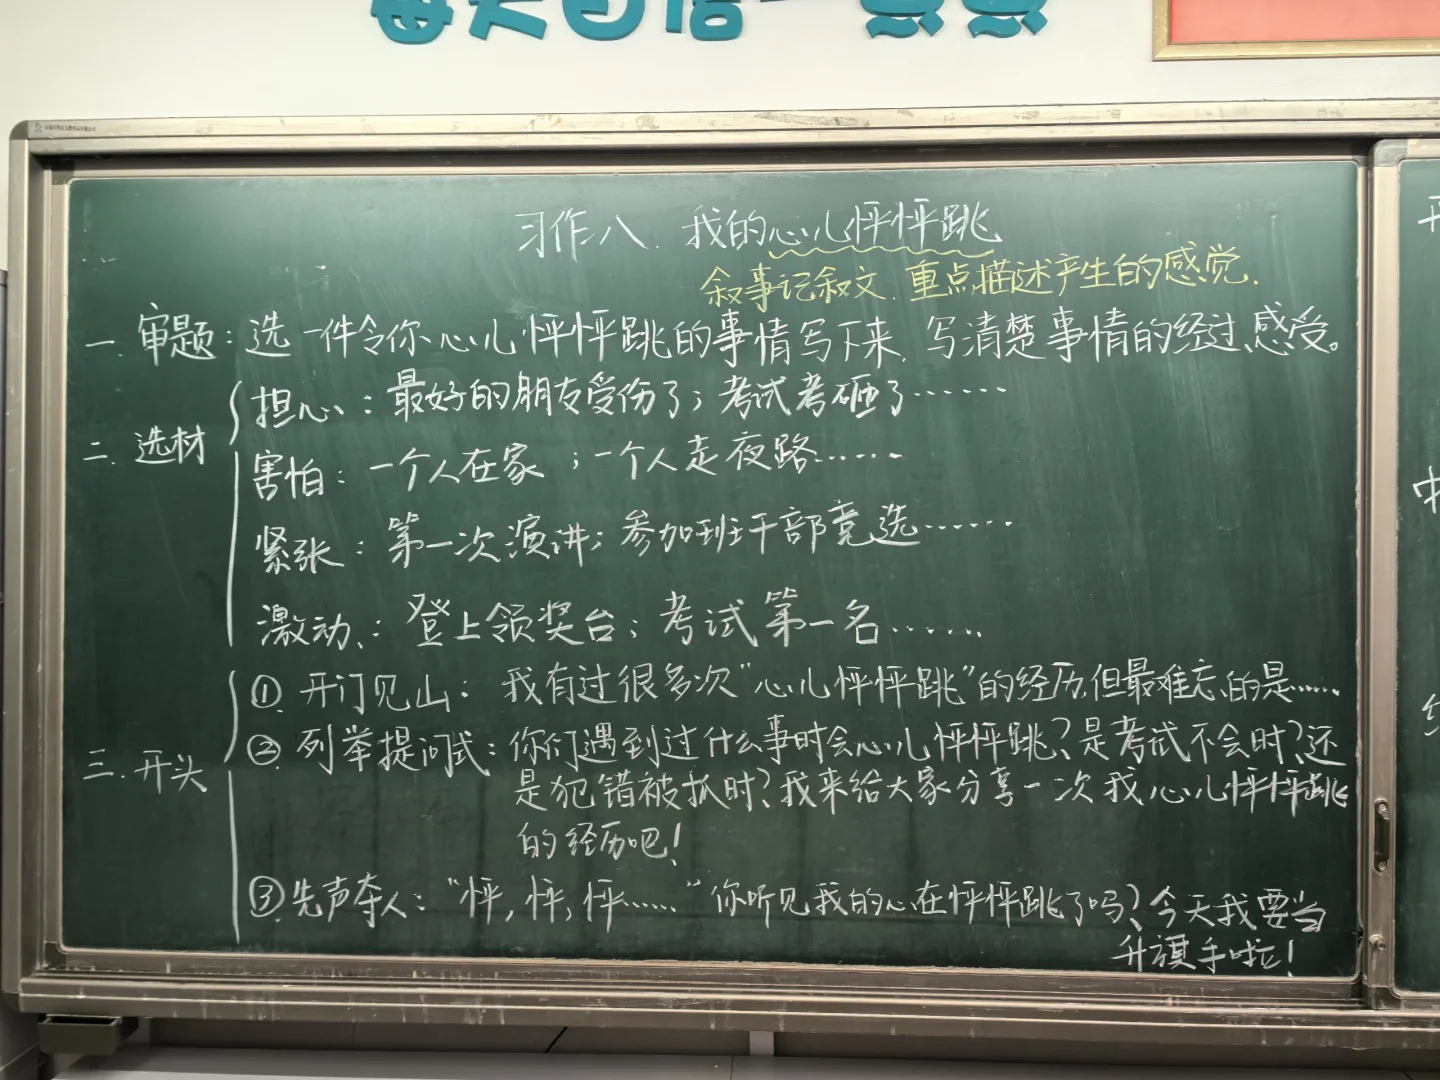 每天自信一点点
习作八.我的心儿怦怦跳
叙事记叙文.重点描述产生的感觉.
一.审题:选一件令你心儿怦怦跳的事情写下来,写清楚事情的经过、感受。
二.选材
担心:最好的朋友受伤了;考试考砸了……
害怕:一个人在家;一个人走夜路……
紧张:第一次演讲;参加班干部竞选……
激动:登上领奖台;考试第一名……
三.开头
①开门见山:我有过很多次"心儿怦怦跳"的经历,但最难忘的是……
②列举提问式:你们遇到过什么事时会心儿怦怦跳?是考试不会时?还
是犯错被抓时?我来给大家分享一次我心儿怦怦跳
的经历吧!
③先声夺人:"怦,怦,怦……"你听见我的心在怦怦跳了吗?今天我要当
升旗手啦!